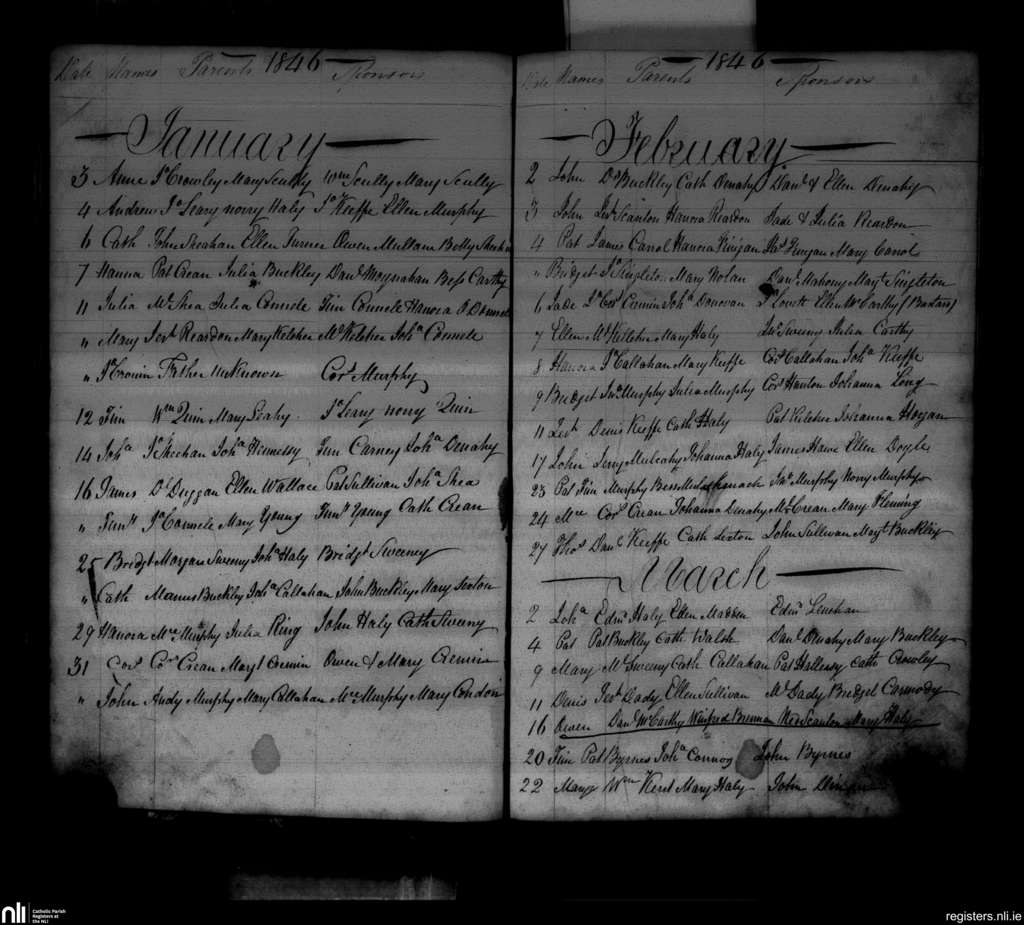 Date Names Parents 1846 Sponsors
January
3 Anne Js Crowley Mary Scully Wm Scully Mary Scully
4 Andrew Jo Leary norry Haly Jo Keeffe Ellen Murphy
6 Cath John Sheahan Ellen Turner Owen Mullam Betty
7 Hanna Pat Crean Julia Buckley Danl Moynahan Bess Carthy
11 Julia Ml Shea Julia Connele Tim Connele Hanora
" Mary Jerh Reardon Mary Keleher Ml Keleher Joha Connele
" Js Cronin Father unknown Cors Murphy
12 Tim Wm Quin Mary Leahy Jo Leary norry Quin
14 Joha Js Sheehan Joha Hennessy Tim Carney Joha Denahy
16 James Ds Duggan Ellen Wallace Pat Sullivan Joha Shea
" Timy Jo Connele Mary Young Timy Young Cath Crean
25 Bridgt Morgan Sweeny Joha Haly Bridgt Sweeney
" Cath Manus Buckley Joha Callahan John Buckley Mary Sexton
29 Hanora Mce Murphy Julia Ring John Haly Cath Sweeny
31 Cors Cors Crean Margt Cremin Owen & Mary Cremin
" John Andy Murphy Mary Callahan Mce Murphy Mary Condon
Date Names Parents 1846 Sponsors
February
2 John Ds Buckley Cath Denahy Danl & Ellen Denahy
3 John Jerh Scanlon Hanora Reardon Jade & Julia Reardon
4 Pat James Carrol Hanora Finigan Finigan Mary Carrol
" Bridget Js Singleton Mary Nolan Danl Mahony Mary Singleton
6 Jade Cremin Joha Donovan Js Lovett Ellen McCarthy
7 Ellen Ml Kelleher Mary Haly Jno Sweeny Julia Carthy
8 Hanora Js Callahan Mary Keeffe Cors Callahan Joha Keeffe
9 Bridget Jno Murphy Julia Murphy Cors Hanlon Johanna Long
11 Jerh Denis Keeffe Cath Haly Pat Kelcher Johanna Hogan
17 John Jerry Mulcahy Johanna Haly James Hawe Ellen Doyle
23 Pat Tim Murphy Bess Jno Murphy Norry Murphy
24 Mce Cors Crean Johanna Denahy Ml Crean Mary Fleming
27 Thos Danl Keeffe Cath Sexton John Sullivan Margt Buckley
March
2 Joha Edmd Haly Ellen Madden Edmd Lenehan
4 Pat Pat Buckley Cath Walsh Danl Denahy Mary Buckley
9 Mary Ml Sweeny Cath Callahan Pat Hallessy Cath Crowley
11 Denis Jerh Dady Ellen Sullivan Ml Dady Bridget Carmody
16 Owen Danl McCarthy Winifred Brennan Ned Scanlon Mary Haly
20 Tim Pat Byrnes Joha Connor John Byrnes
22 Mary Wm Kent Mary Haly John
nli Catholic Parish
Registers at
the NLI
registers.nli.ie